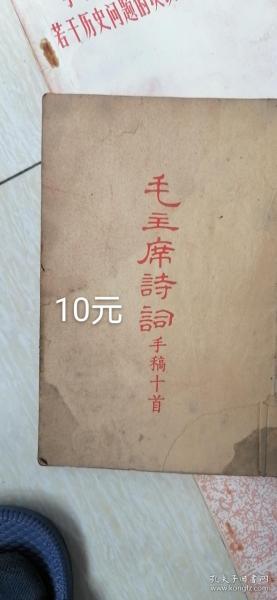 若干历史问题的决
毛主席詩詞
手稿十首
10元
孔夫子旧书网
kongfz.com